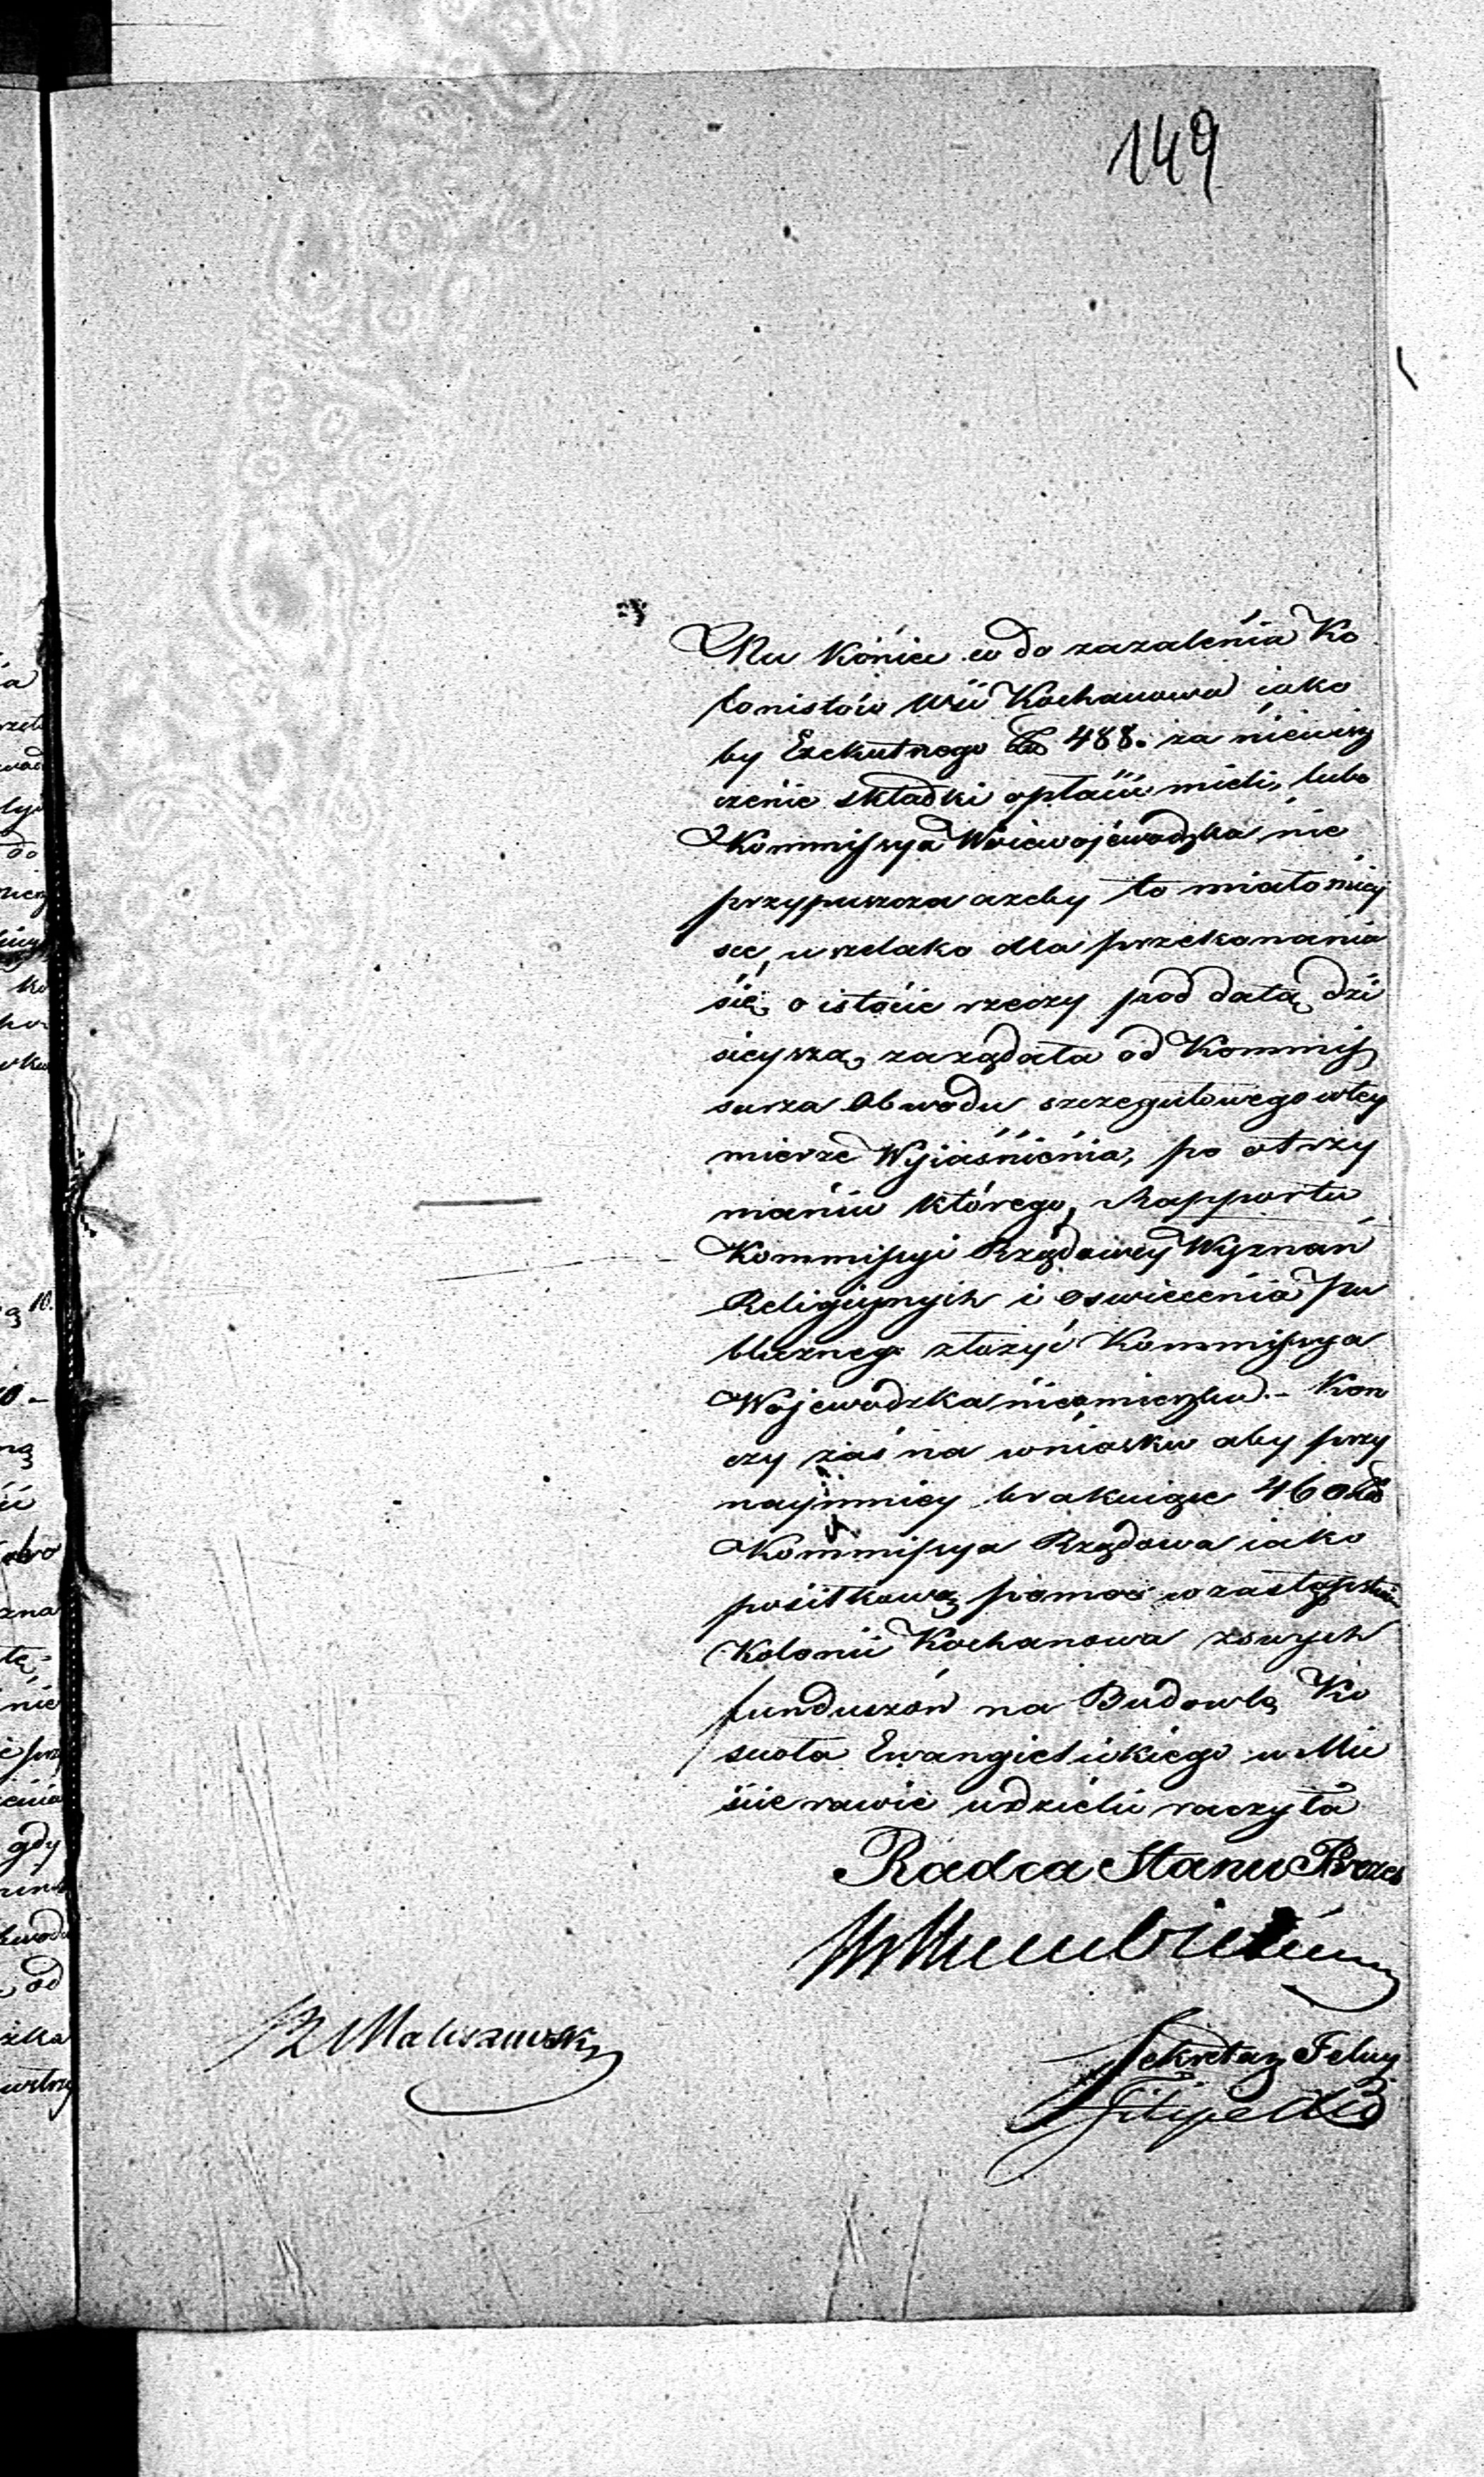 149
Na koniec co do zażalenia Ko
lonistów Wsi Kochanowa jako
by Exekutnego 488. za nieuisz
czenie składki opłacić mieli, lubo
Kommissya Wojewódzka nie
przypuszcza azeby to miało miey
sce, wszelako dla przekonania
się o istocie rzeczy pod datą dzi
sieyszą zażądała od Kommis
sarza Obwodu szczegułowego w tey
mierze Wyiaśnienia, po otrzy
maniu którego, Rapportu
Kommissyi Rządowey Wyznań
Religiynych i Oswiecenia Pu
blicznego złożyć Kommissya
Wojewódzka nieomieszka. - Koń
czy zaś na wniosku aby przy
naymniey brakuiące 460
Kommissya Rządowa iako
posiłkową pomoc w zastępstwie
Kolonii Kochanowa z swych
funduszów na Budowlę Ko
scioła Ewangielickiego w Mie
ście rawie udzielić raczyła
Radca Stanu Prezes
Sekretarz Jelny
Filipecki